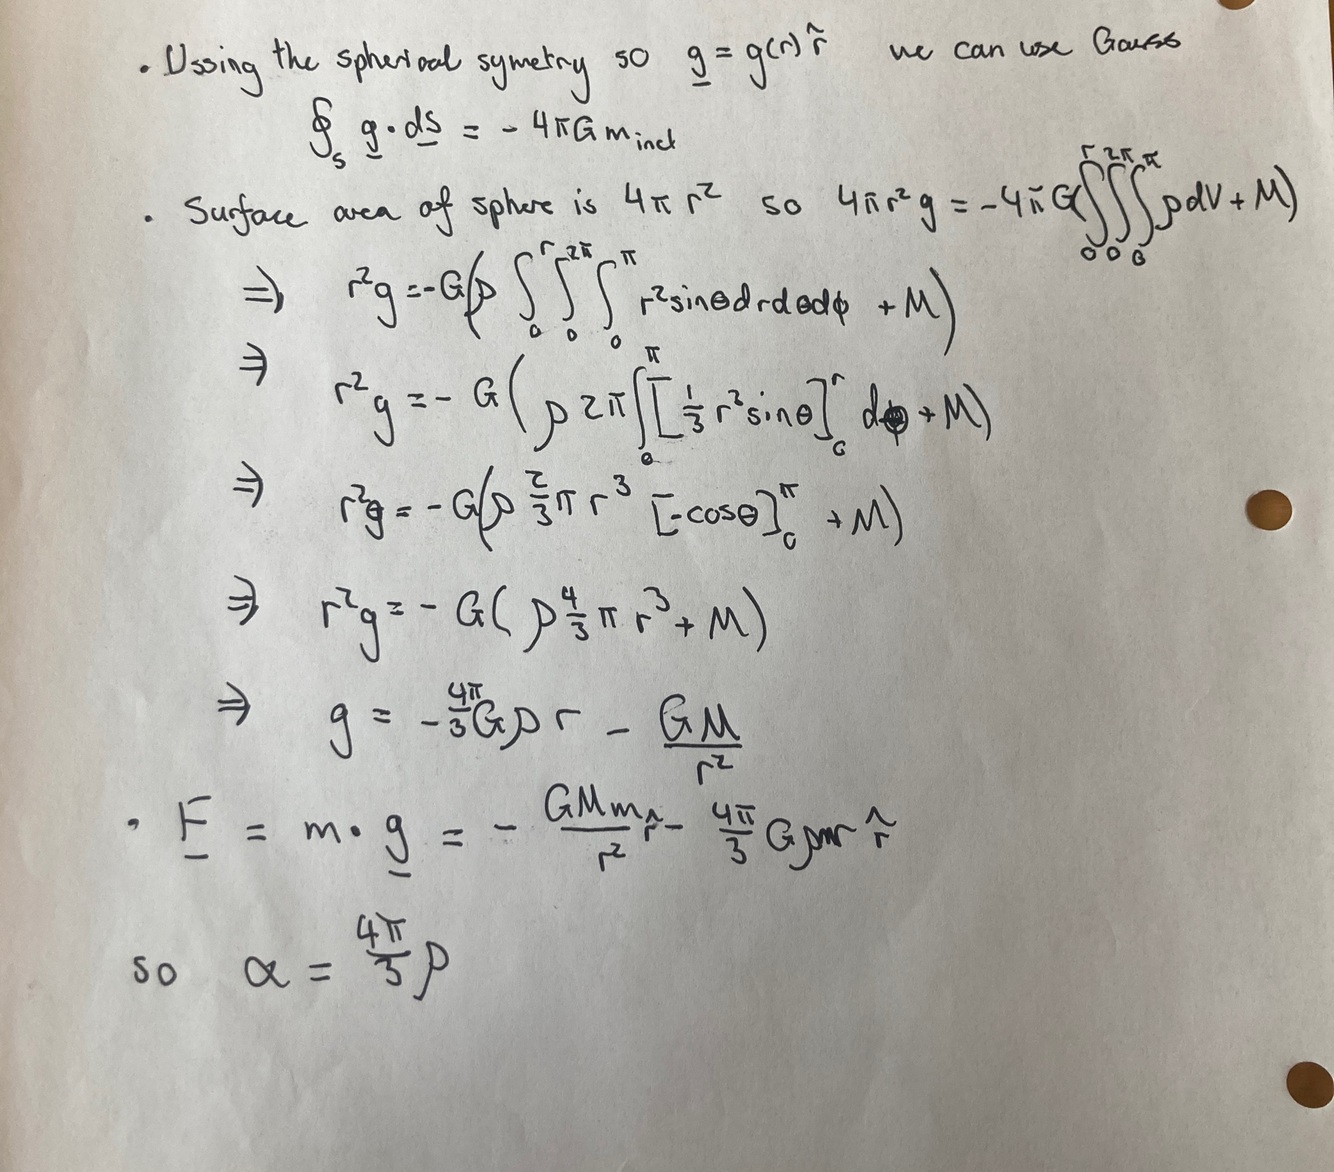 • Ussing the spherical symetry so g = g(r) r̂ we can use Gauss
∮_S g · dS = - 4πG m_incl
• Surface area of sphere is 4πr² so 4πr²g = -4πG(∫₀^r ∫₀^2π ∫₀^π ρdV + M)
⇒ r²g = -G(ρ ∫₀^r ∫₀^2π ∫₀^π r²sinθdrdθdφ + M)
⇒ r²g = - G(ρ 2π ∫₀^π [1/3 r³sinθ]₀^r dφ + M)
⇒ r²g = - G(ρ 2/3 π r³ [-cosθ]₀^π + M)
⇒ r²g = - G(ρ 4/3 π r³ + M)
⇒ g = - 4π/3 Gρr - GM/r²
• F = m · g = - GMm/r² r̂ - 4π/3 Gρmr r̂
so α = 4π/3 ρ